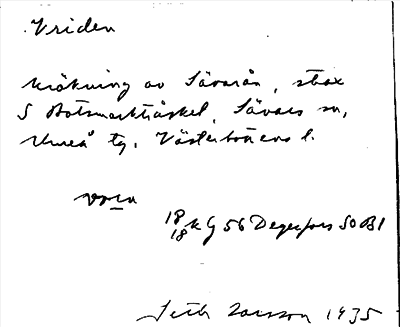 Vriden
krökning av Sävarån, strax
S Botsmarkträsket, Sävars sn,
Umeå tg. Västerbottens l.
vrɩ̄n
18/18 k G 56 Degerfors SO Bl
Seth Larsson 1935